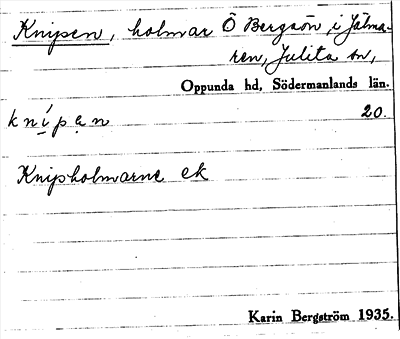 Knipen, holmar Ö Bergsön, i Jälma-
ren, Julita sn,
Oppunda hd, Södermanlands län.
knípa̤n 20.
Knipholmarne ek
Karin Bergström 1935.